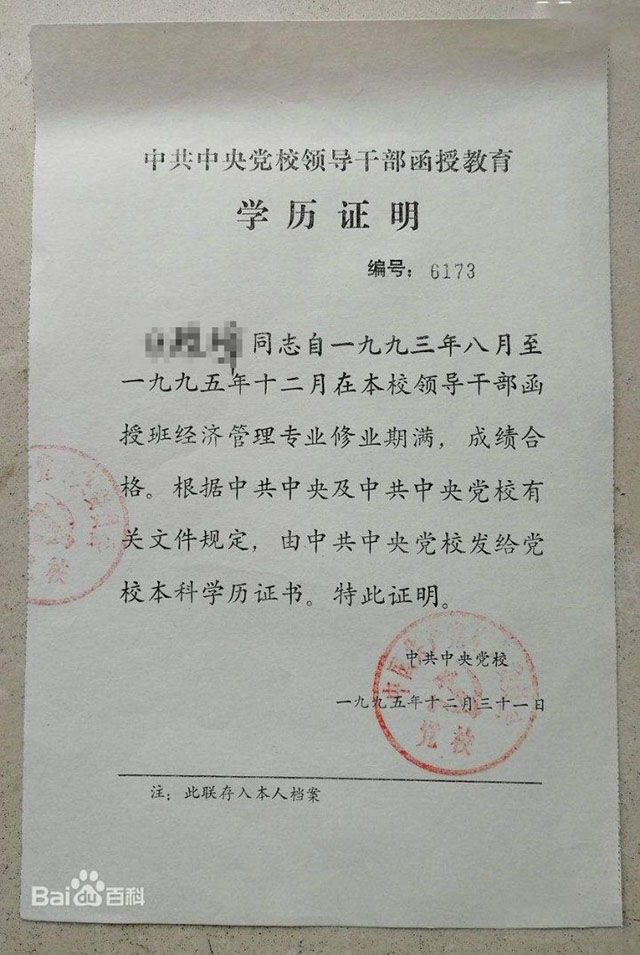 中共中央党校领导干部函授教育
学历证明
编号：6173
同志自一九九三年八月至
一九九五年十二月在本校领导干部函
授班经济管理专业修业期满，成绩合
格。根据中共中央及中共中央党校有
关文件规定，由中共中央党校发给党
校本科学历证书。特此证明。
中共中央党校
一九九五年十二月三十一日
党校
注：此联存入本人档案
Bai百科